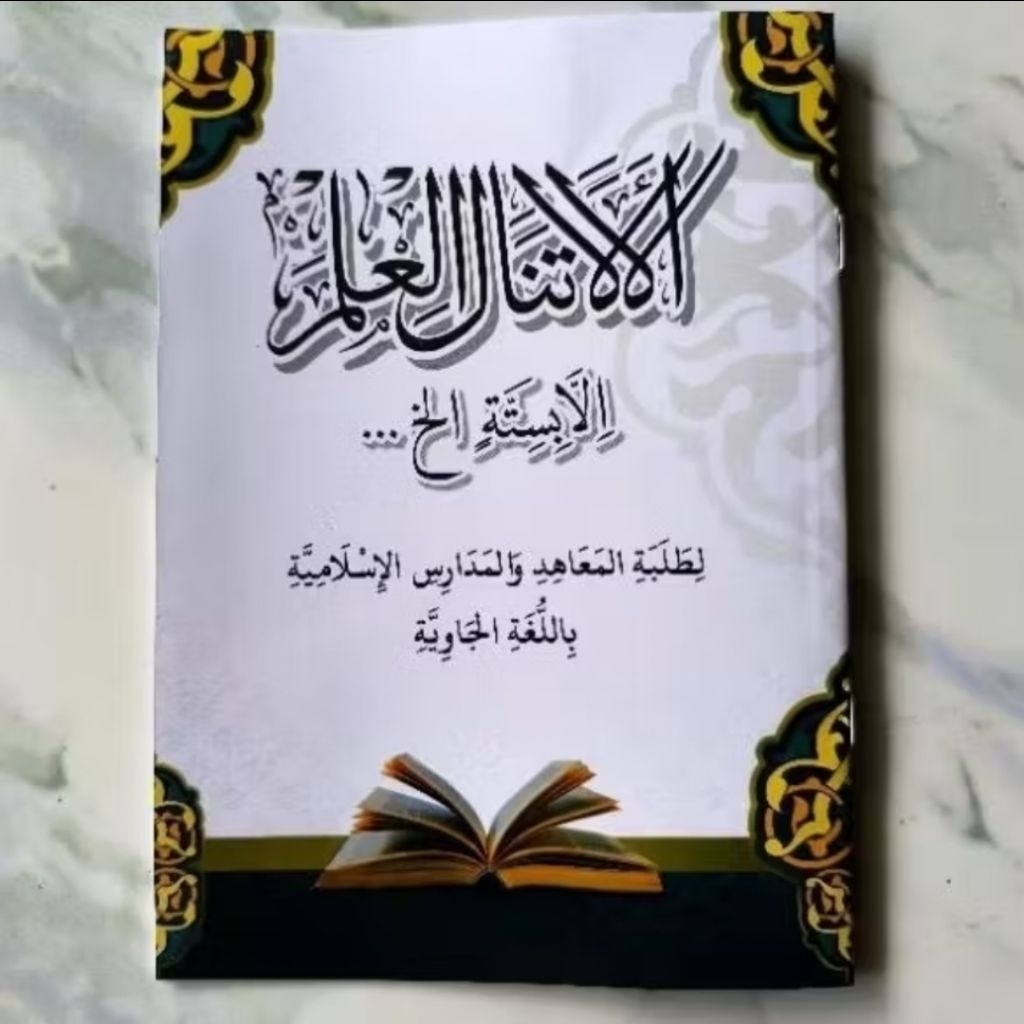 أَلَا لَا تَنَالُ الْعِلْمَ
اِلَّا بِسِتَّةٍ الخ ...
لِطَلَبَةِ المَعَاهِدِ وَالمَدَارِسِ الإِسْلَامِيَّةِ
بِاللُّغَةِ الجَاوِيَّةِ